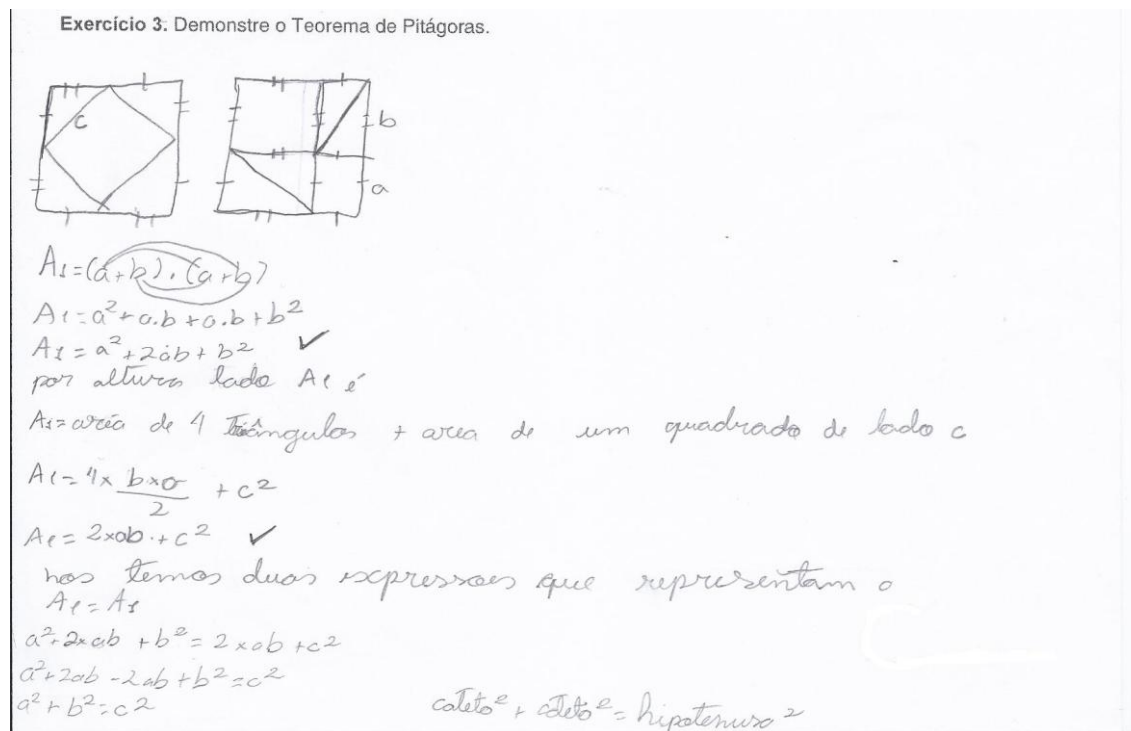 Exercício 3. Demonstre o Teorema de Pitágoras.
c
b
a
A1=(a+b).(a+b)
A1=a²+a.b+a.b+b²
A1=a²+2ab+b² ✓
por altura lado A1 é
A1=area de 4 Triângulos + area de um quadrado de lado c
A1=4x b×a/2 +c²
A1=2×ab.+c² ✓
nos temos duas expressoes que representam o
A1=A1
a²+2×ab+b²=2×ab+c²
a²+2ab-2ab+b²=c²
a²+b²=c²
cateto²+cateto²=hipotenusa²